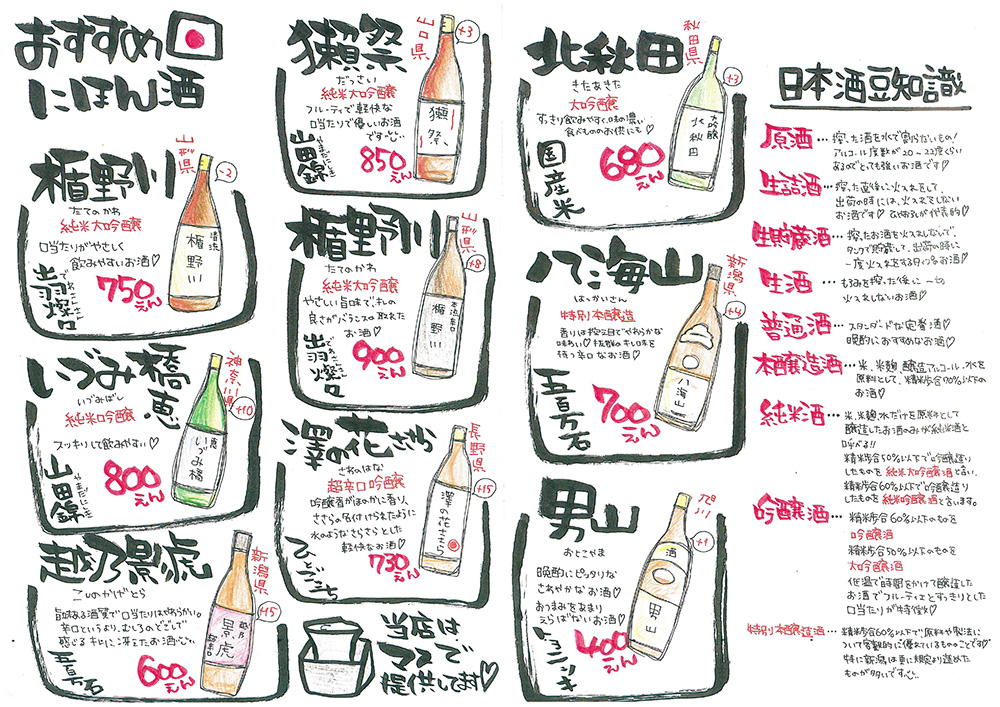 おすすめ
にほん酒
楯野川
山形県
-2
たてのかわ
純米大吟醸
口当たりがやさしく
飲みやすいお酒♡
出羽燦々
でわさんさん
750えん
清流
楯野川
いづみ橋
恵
神奈川県
+10
いづみばし
純米吟醸
スッキリして飲みやすい♡
山田錦
やまだにしき
800えん
恵
いづみ橋
越乃景虎
新潟県
+15
こしのかげとら
旨味ある酒質で口当たりはやわらかい。
辛口というより、むしろのどごしで
感じるキレに冴えたお酒
五百万石
600えん
越乃
景虎
獺祭
山口県
+3
だっさい
純米大吟醸
フルーティで軽快な
口当たりで優しいお酒
です
山田錦
やまだにしき
850えん
獺祭
楯野川
山形県
+8
たてのかわ
純米大吟醸
やさしい旨味でキレの
良さがバランスの取れた
お酒♡
出羽燦々
でわさんさん
900えん
本流辛口
楯野川
澤の花ささら
長野県
+15
さわのはな
超辛口吟醸
吟醸香がほのかに香り、
ささらの名付けられたように
水のようなさらさらとした
軽快なお酒♡
ひとごこち
730えん
澤の花ささら
当店は
マスで
提供してます♡
北秋田
秋田県
+3
きたあきた
大吟醸
すっきり飲みやすく、味の濃い
食べもののお供にも♡
国産米
680えん
大吟醸
北秋田
八海山
新潟県
+4
はっかいさん
特別本醸造
香りは控え目でやわらかな
味わい♡抜群のキレ味を
持つ辛口なお酒♡
五百万石
700えん
八海山
男山
旭川
+1
おとこやま
晩酌にピッタリな
さわやかなお酒♡
おつまみをあまり
えらばないお酒♡
400えん
酒
男山
日本酒豆知識
原酒…搾った酒を水で割らないもの!
アルコール度数が20〜22度くらい
あるのでとても強いお酒です♡
生詰酒…搾った直後に火入れをして、
出荷の時には、火入れをしない
お酒です♡ひやおろしが代表的♡
生貯蔵酒…搾ったお酒を火入れしないで、
タンクで貯蔵して、出荷の時に
一度火入れをするタイプのお酒♡
生酒…もろみを搾った後に一切
火入れしないお酒♡
普通酒…スタンダードな定番酒♡
晩酌におすすめなお酒♡
本醸造酒…米、米麹、醸造アルコール、水を
原料として、精米歩合70%以下の
お酒♡
純米酒…米、米麹、水だけを原料として
醸造したお酒のみが純米酒と
呼べる!!
精米歩合50%以下で吟醸造り
したものを純米大吟醸酒と言い、
精米歩合60%以下で吟醸造り
したものを純米吟醸酒と言います。
吟醸酒…精米歩合60%以下のものを
吟醸酒
精米歩合50%以下のものを
大吟醸酒
低温で時間をかけて醸造した
お酒でフルーティとすっきりとした
口当たりが特徴♡
特別本醸造酒…精米歩合60%以下で原料や製法に
ついて客観的に優れているもののことです♡
特に新潟は更に規定より進めた
ものが多いです